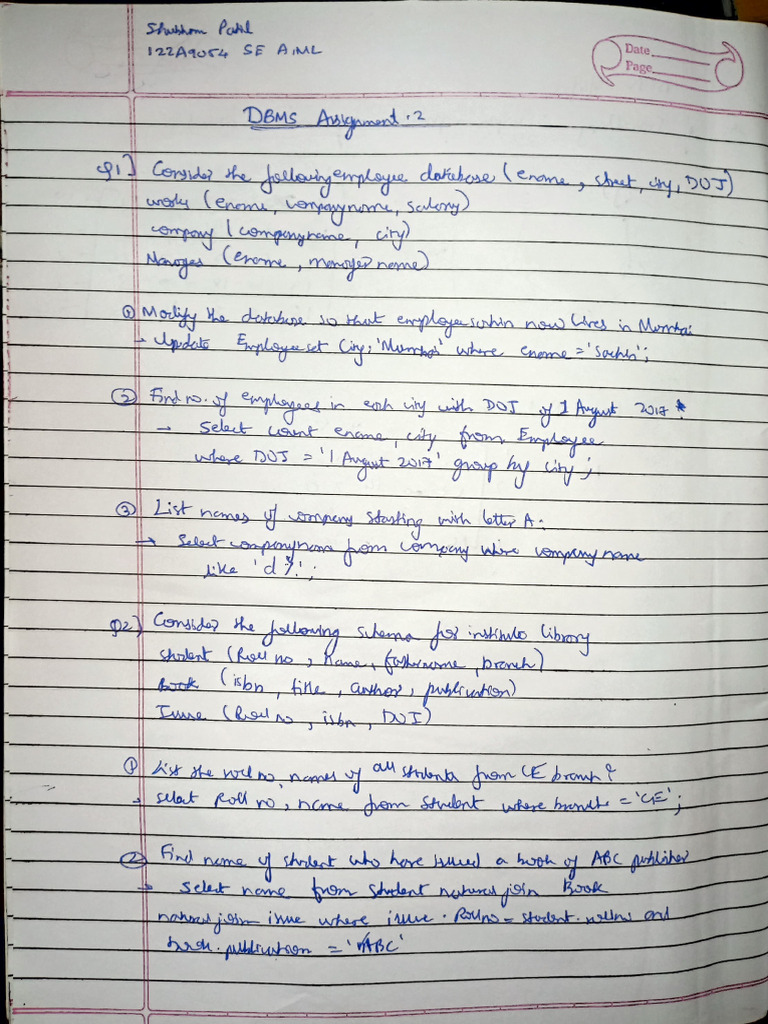 Shubham Patil
122A9054 SE AIML
Date
Page
DBMS Assignment.2
Q1] Consider the following employee database (ename, street, city, DOJ)
works (ename, companyname, salary)
company (companyname, city)
Manages (ename, manager name)
① Modify the database so that employee sachin now Lives in Mumbai
→ Update Employee set City: 'Mumbai' where ename = 'Sachin';
② Find no. of employees in each city with DOJ of 1 August 2017.
→ Select count ename, city from Employee
where DOJ = '1 August 2017' group by city;
③ List names of company starting with letter A.
→ Select companyname from company where company name
like 'd%';
Q2] Consider the following schema for institute library
student (Roll no, name, fathername, branch)
Book (isbn, title, author, publication)
Issue (Roll no, isbn, DOI)
① List the roll no, names of all students from CE branch?
→ select Roll no, name from Student where branch = 'CE';
② Find name of student who have issued a book of ABC publisher
→ Select name from student natural join Book
natural join issue where issue.Rollno = student.rollno and
book.publication = 'ABC'